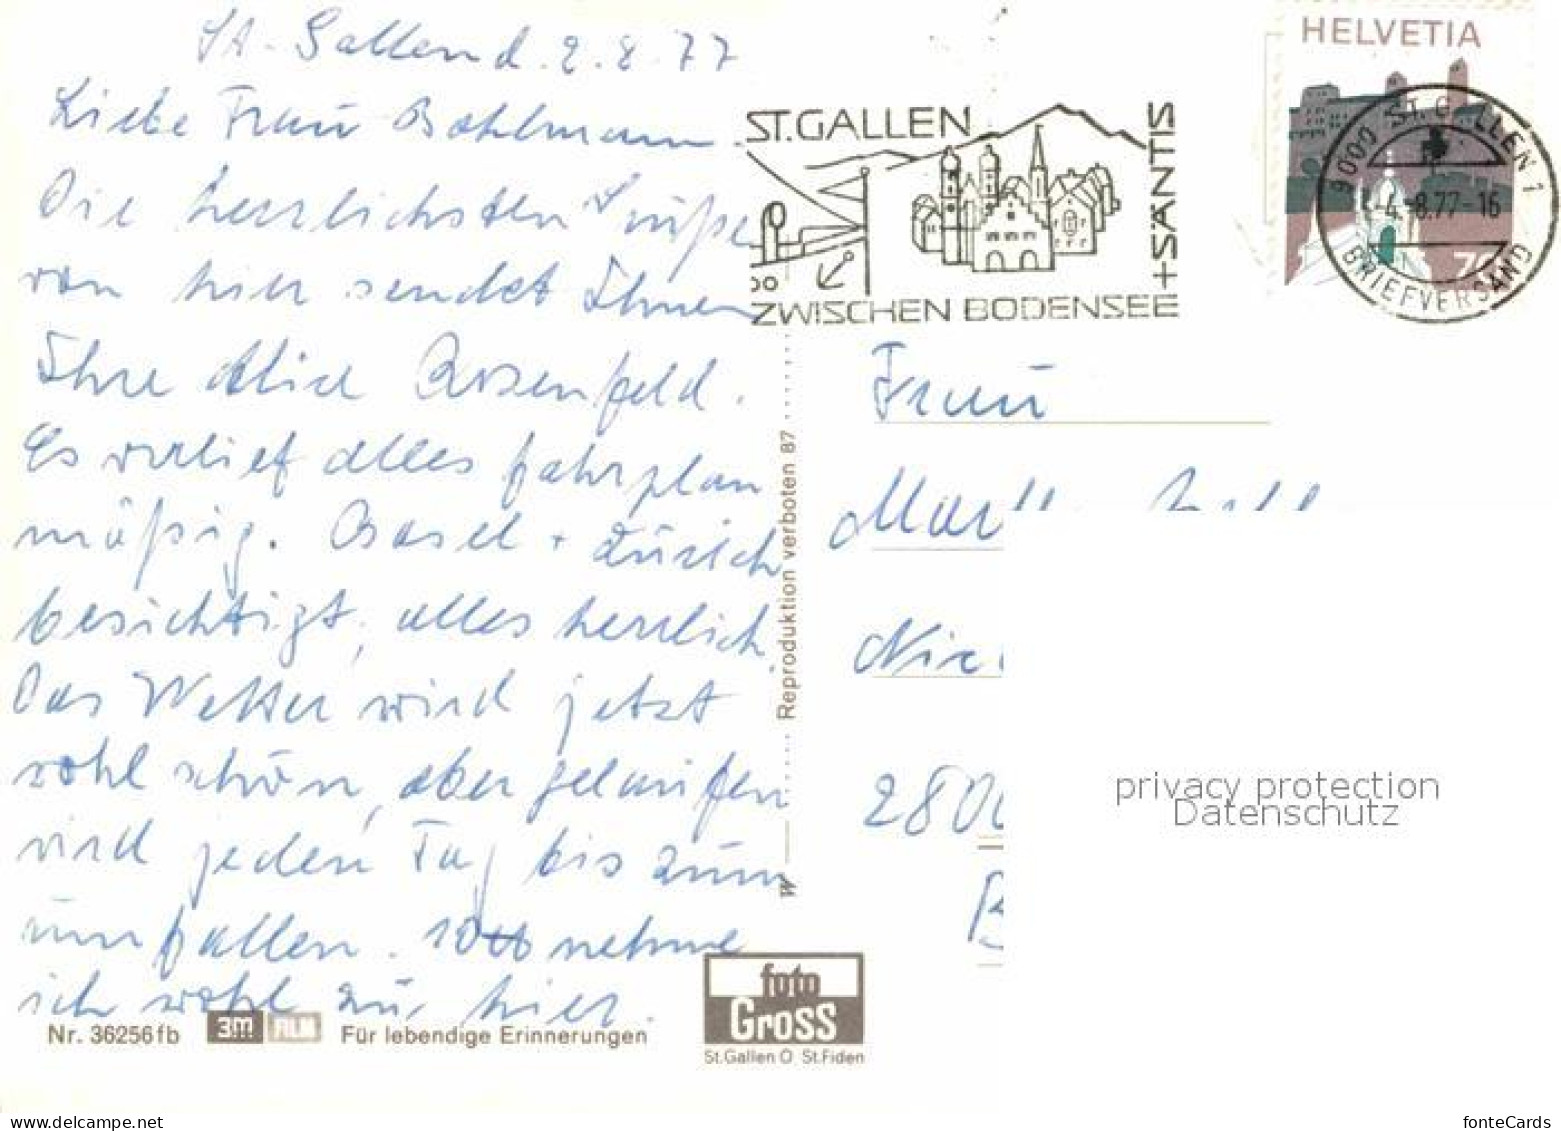 St. Gallen d. 2.8.77
Liebe Frau Bohlmann.
Die herrlichsten Grüße
von hier sendet Ihnen
Ihre Alice Rosenfeld.
Es verlief alles fahrplan
mäßig. Basel + Zürich
besichtigt, alles herrlich.
Das Wetter wird jetzt
wohl schön, aber gelaufen
wird jeden Tag bis zum
umfallen. 10 nehme
ich wohl zu, hier.
Nr. 36256fb 3m Für lebendige Erinnerungen
foto
Gross
St.Gallen O St.Fiden
W Reproduktion verboten 87
ST.GALLEN
ZWISCHEN BODENSEE
+SÄNTIS
HELVETIA
9000 ST.GALLEN 1
4.-8.77-16
BRIEFVERSAND
Frau
2800
privacy protection
Datenschutz
fonteCards